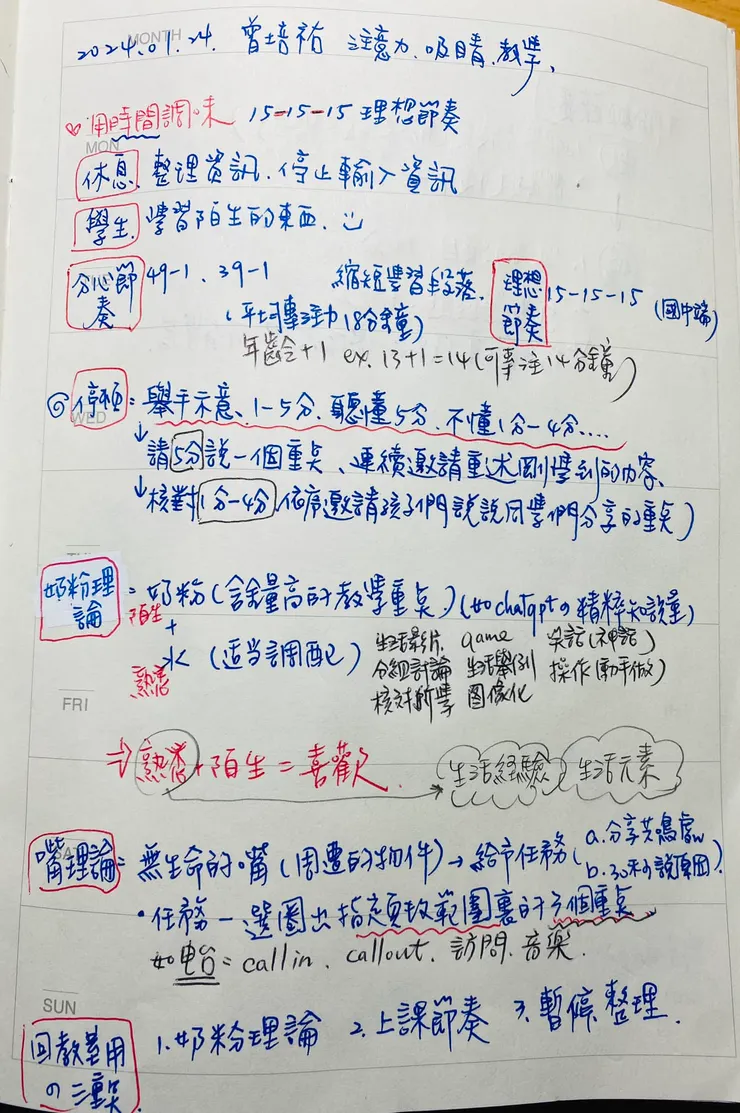 MONTH
2024.01.24. 曾培祐 注意力.吸睛.教學、
♡用時間調味 15-15-15 理想節奏
MON
休息 整理資訊.停止輸入資訊
學生 學習陌生的東西.
分心節奏 49-1、39-1 縮短學習段落. 理想節奏 15-15-15 (國中端)
(平均專注力18分鐘)
年齡+1 ex. 13+1=14(可專注14分鐘)
WED
停頓=舉手示意、1-5分.聽懂5分.不懂1分-4分....
↓請5分說一個重點、連續邀請重述剛學到的內容、
↓核對1分-4分.依序邀請孩子們說說同學們分享的重點)
奶粉理論=奶粉(含量高的教學重點)(如chatgptの精粹知識量)
陌生
+
水(适当調配) 生活影片. game 笑話(神話)
熟悉 分組討論 生活舉例 操作(動手做)
核對所學 圖像化
FRI
⇒熟悉+陌生=喜歡. → 生活經驗 生活元素
SAT
嘴理論=無生命的嘴(周遭的物件)→給予任務(a.分享共鳴處
b.30秒說原因)
・任務一選圈出指定頁數範圍裏的3個重點
如電台=call in. callout. 訪問.音樂.
SUN
回教室用の三重點. 1.奶粉理論 2.上課節奏 3.暫停.整理.